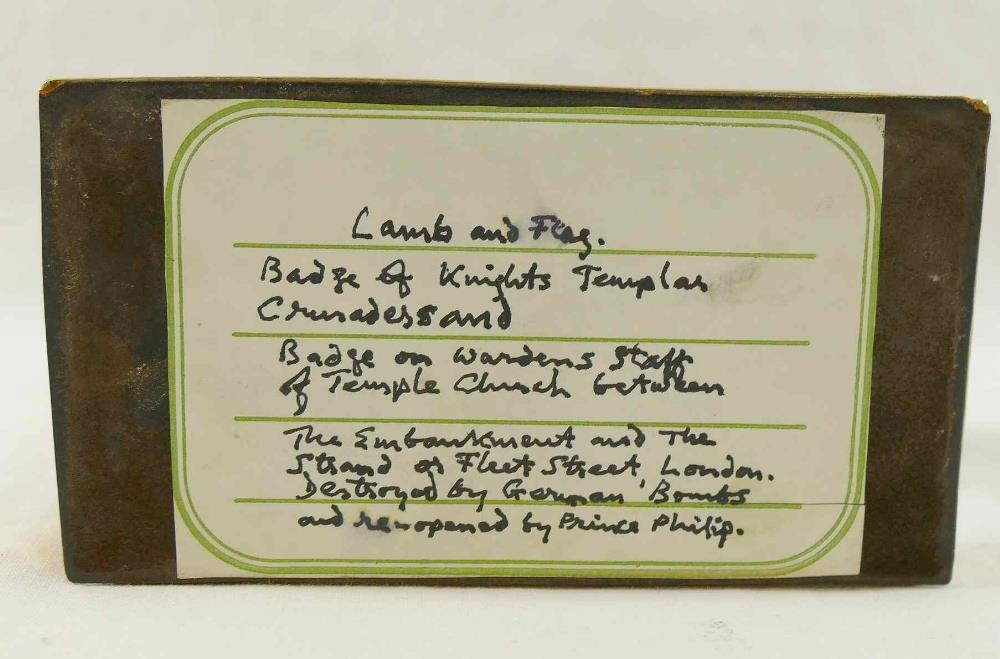 Lamb and Flag.
Badge of Knights Templar
Crusaders and
Badge on Wardens Staff
of Temple Church between
The Embankment and The
Strand or Fleet Street, London.
Destroyed by German Bombs
and re-opened by Prince Philip.